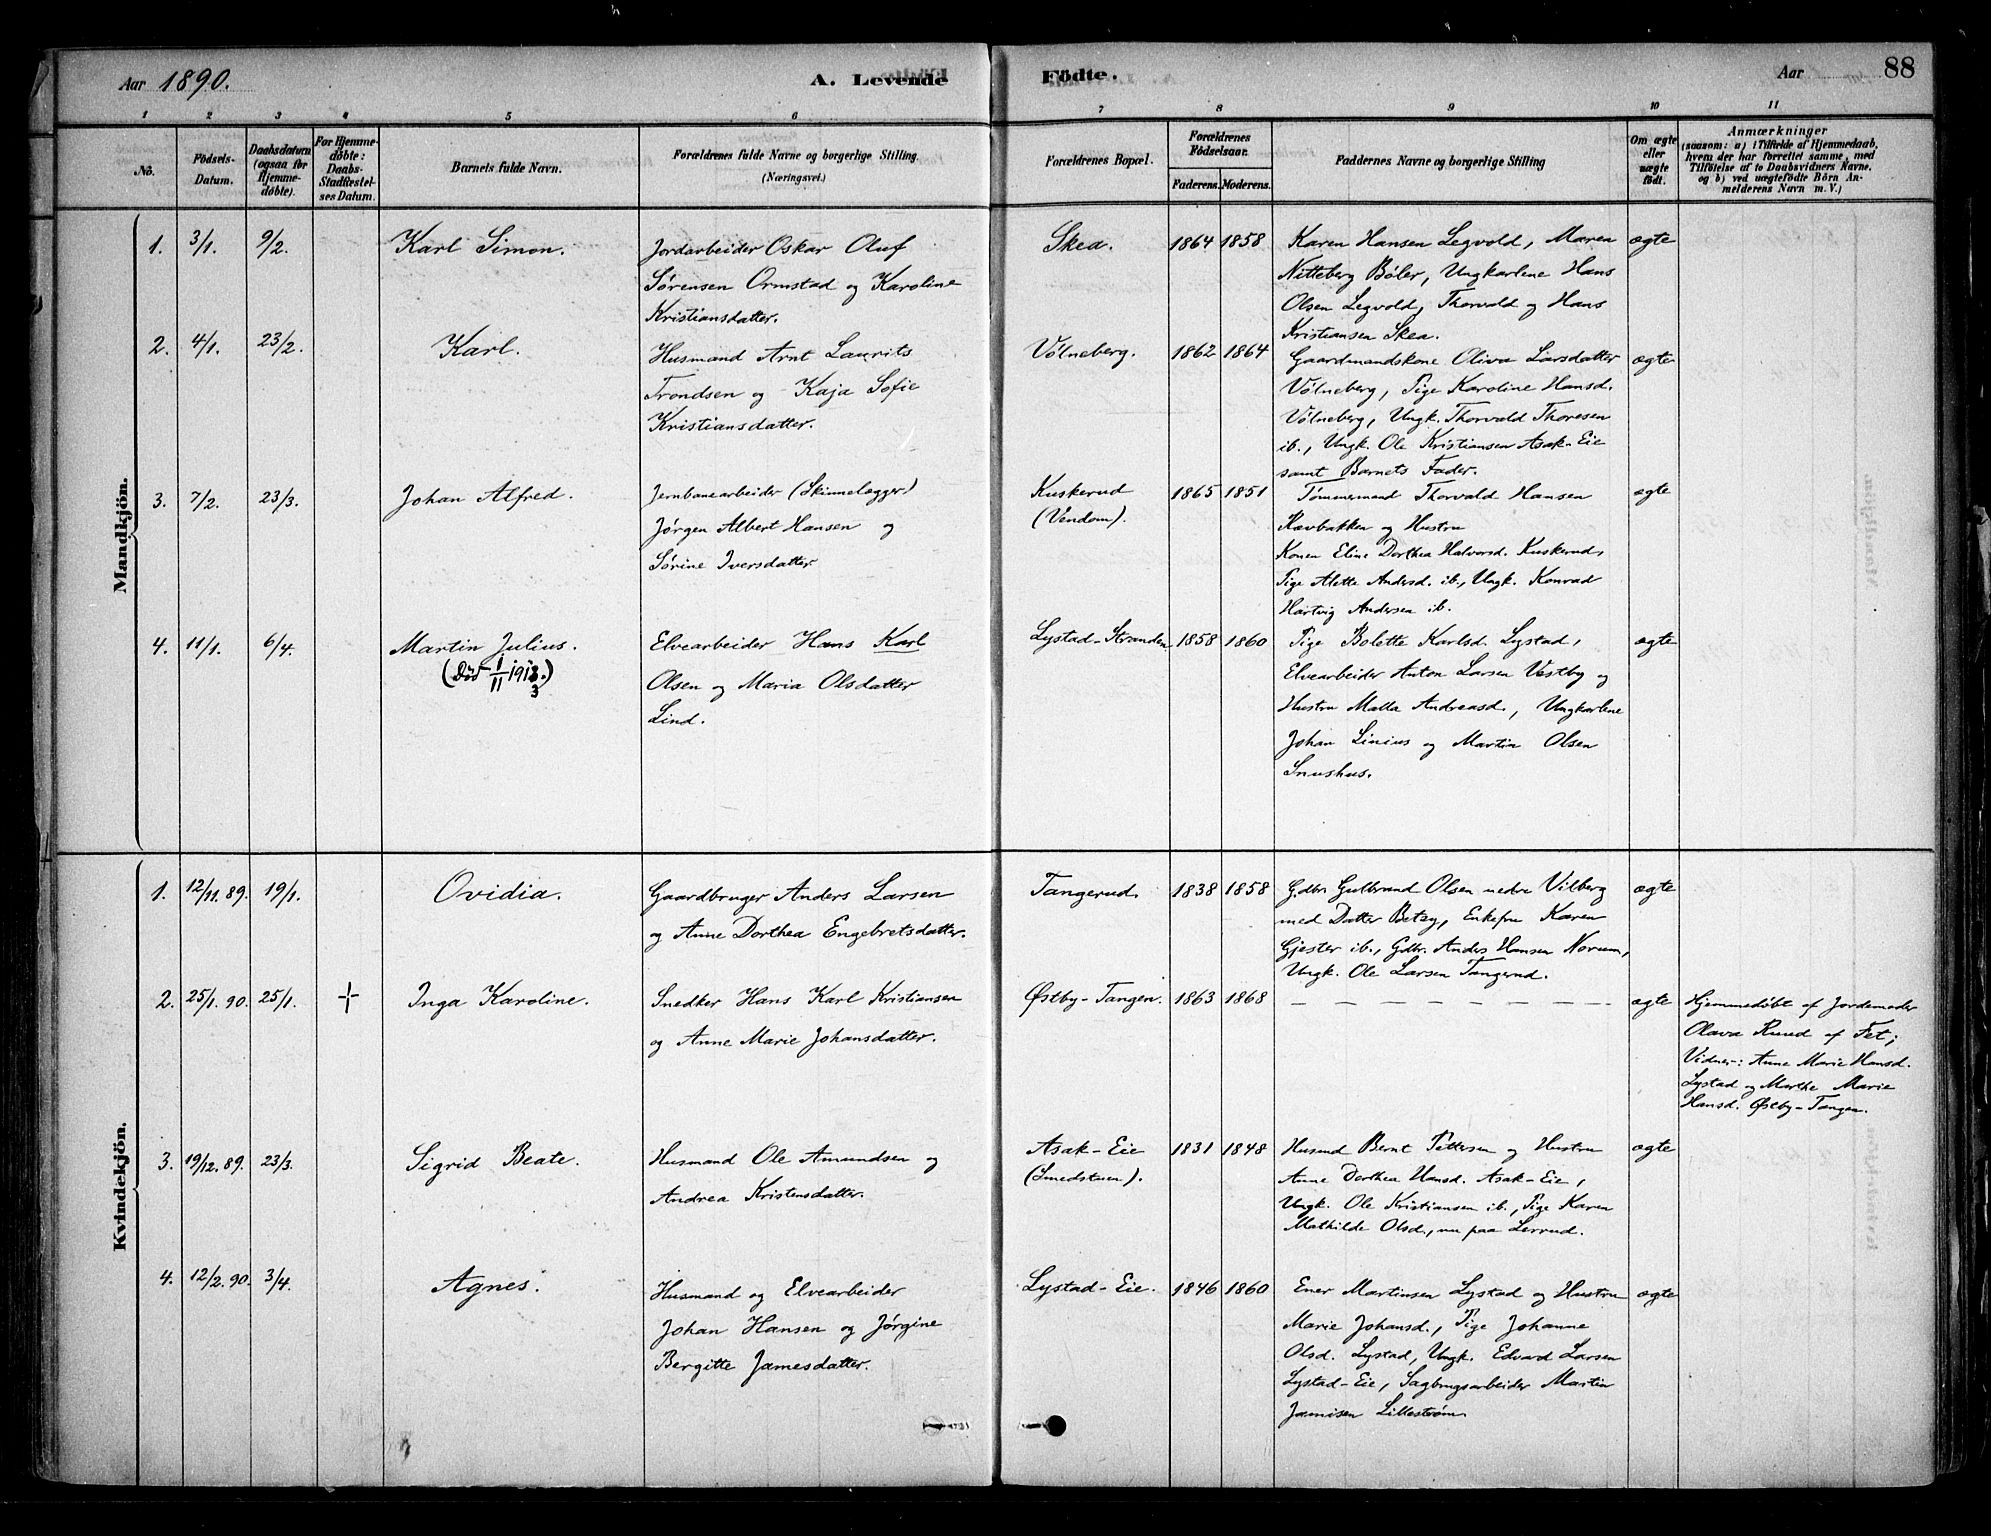 Aar 1890.
A. Levende
Födte.
Aar
88
1 2 3 4 5 6 7 8 9 10 11
No.
Födsels-
Datum.
Daabsdatum
(ogsaa for
Hjemme-
döbte).
For Hjemme-
döbte:
Daabs-
Stadfæstel-
ses Datum.
Barnets fulde Navn.
Forældrenes fulde Navne og borgerlige Stilling.
(Næringsvei.)
Forældrenes Bopæl.
Forældrenes
Födselsaar.
Faderens. Moderens.
Faddernes Navne og borgerlige Stilling
Om ægte
eller
uægte
födt.
Anmærkninger
(saasom: a) i Tilfælde af Hjemmedaab,
hvem der har forrettet samme, med
Tilföielse af to Daabsvidners Navne,
og b) ved uægtefödte Börn An-
melderens Navn m. V.)
Mandkjön.
1. 3/1. 9/2. Karl Simon.
Jordarbeider Oskar Oluf
Sørensen Ormstad og Karoline
Kristiansdatter.
Skea. 1864 1858
Karen Hansen Legvold, Maren
Nitteberg Bøler, Ungkarlene Hans
Olsen Legvold, Thorvald og Hans
Kristiansen Skea.
ægte
2. 4/1. 23/2. Karl.
Husmand Arnt Laurits
Trondsen og Kaja Sofie
Kristiansdatter.
Vølneberg. 1862 1864
Gaardmandskone Oliva Larsdatter
Vølneberg, Pige Karoline Hansd.
Vølneberg, Ungk. Thorvald Thoresen
ib., Ungk. Ole Kristiansen Asak-Eie
samt Barnets Fader.
ægte
3. 7/2. 23/3. Johan Alfred.
Jernbanearbeider (Skinnelægger)
Jørgen Albert Hansen og
Sørine Iversdatter
Kuskerud
(Vendom).
1865 1851
Tømmermand Thorvald Hansen
Rævbakken og Hustru
Konen Eline Dorthea Halvorsd. Kuskerud,
Pige Alette Andersd. ib., Ungk. Konrad
Hartvig Andersen ib.
ægte
4. 11/1. 6/4. Martin Julius.
(Død 1/11 1913.)
3
Elvearbeider Hans Karl
Olsen og Maria Olsdatter
Lind.
Lystad-Stranden 1858 1860
Pige Bolette Karlsd. Lystad,
Elvearbeider Anton Larsen Vestby og
Hustru Malla Andreasd., Ungkarlene
Johan Linius og Martin Olsen
Snushus.
ægte
Kvindekjön.
1. 12/11. 89. 19/1. Ovidia.
Gaardbruger Anders Larsen
og Anne Dorthea Engebretsdatter.
Tangerud. 1838 1858
Gdbr. Gulbrand Olsen nedre Vilberg
med Datter Betzy, Enkefru Karen
Gjester ib., Gdbr. Anders Hansen Norum,
Ungk. Ole Larsen Tangerud.
ægte
2. 25/1. 90. 25/1. + Inga Karoline.
Snedker Hans Karl Kristiansen
og Anne Marie Johansdatter.
Østby-Tangen. 1863 1868
— — — — — — — —
ægte
Hjemmedøbt af Jordemoder
Olava Ruud af Fet;
Vidner: Anne Marie Hansd.
Lystad og Marthe Marie
Hansd. Østby-Tangen.
3. 19/12. 89. 23/3. Sigrid Beate.
Husmand Ole Amundsen og
Andrea Kristensdatter.
Asak-Eie
(Smedstuen).
1831 1848
Husmd Bernt Pettersen og Hustru
Anne Dorthea Hansd. Asak-Eie,
Ungk. Ole Kristiansen ib., Pige Karen
Mathilde Olsd., nu paa Lerrud.
ægte
4. 12/2. 90. 3/4. Agnes.
Husmand og Elvearbeider
Johan Hansen og Jørgine
Bergitte Jamesdatter.
Lystad-Eie. 1846 1860
Ener Martinsen Lystad og Hustru
Marie Johansd., Pige Johanne
Olsd. Lystad, Ungk. Edvard Larsen
Lystad-Eie, Sagbrugsarbeider Martin
Jamisen Lillestrøm.
ægte